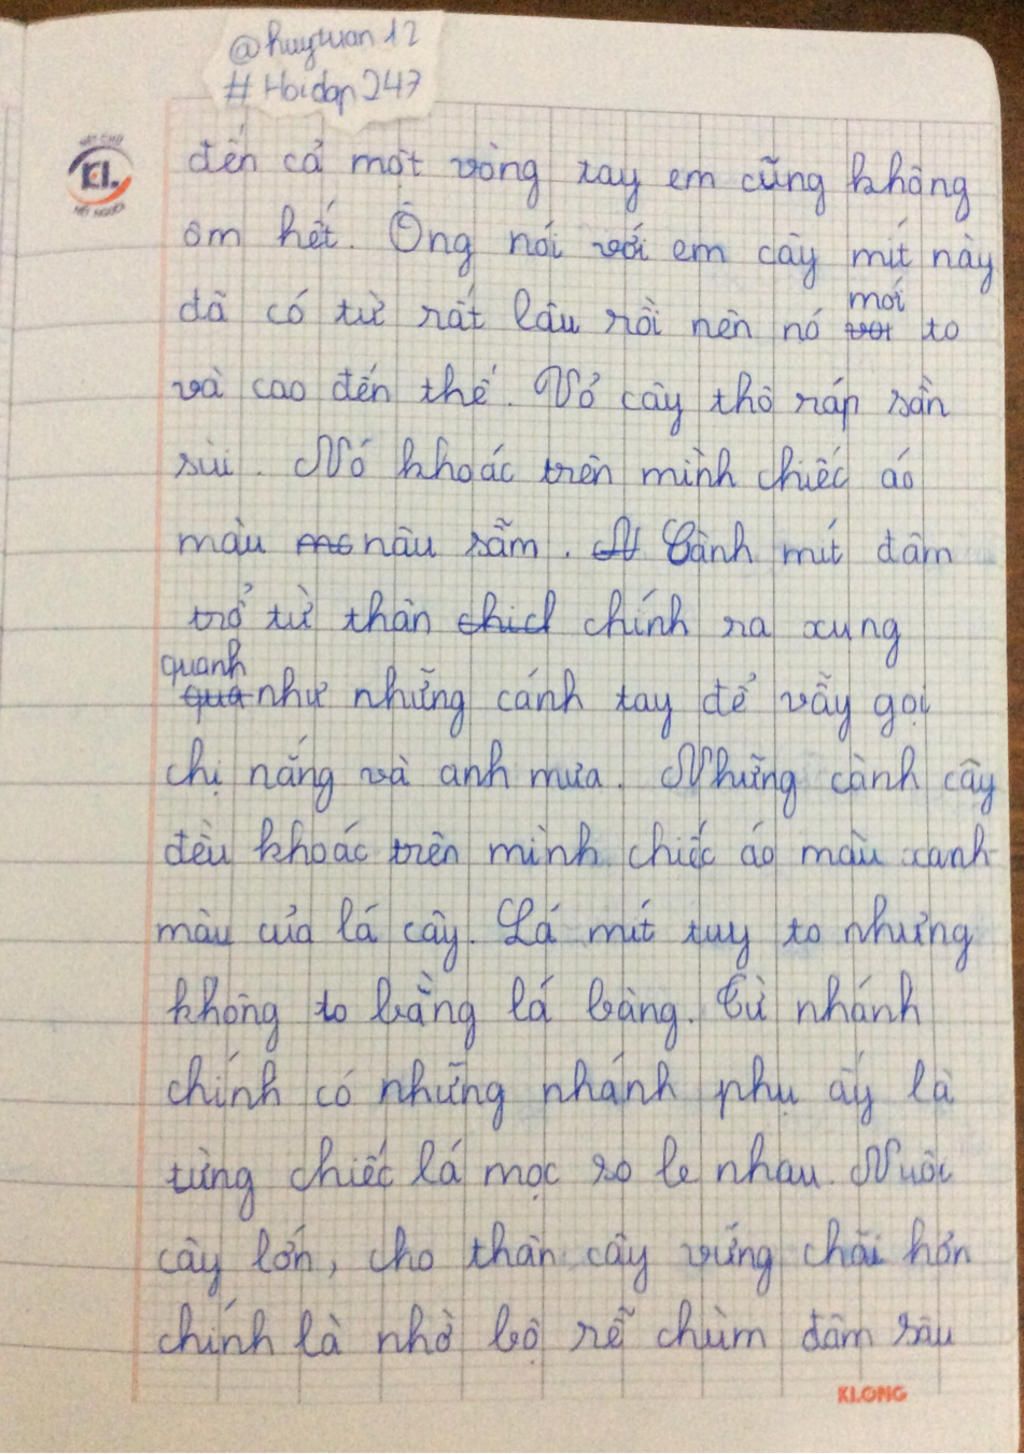 @huytuan12
#Hoidap247
NÉT CHỮ
KL
NẾT NGƯỜI
đến cả một vòng tay em cũng không
ôm hết. Ông nói với em cây mít này
đã có từ rất lâu rồi nên nó mới to
và cao đến thế. Vỏ cây thô ráp sần
sùi. Nó khoác trên mình chiếc áo
màu nâu sẫm. Cành mít đâm
trổ từ thân chính ra xung
quanh như những cánh tay để vẫy gọi
chị nắng và anh mưa. Những cành cây
đều khoác trên mình chiếc áo màu xanh
màu của lá cây. Lá mít tuy to nhưng
không to bằng lá bàng. Từ nhánh
chính có những nhánh phụ ấy là
từng chiếc lá mọc so le nhau. Nuôi
cây lớn, cho thân cây vững chãi hơn
chính là nhờ bộ rễ chùm đâm sâu
KLONG